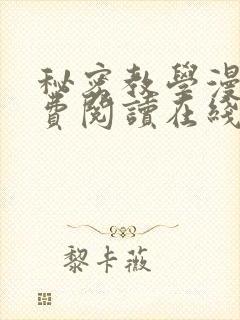 秘密教學漫
費閱讀在綫
黎卡薇